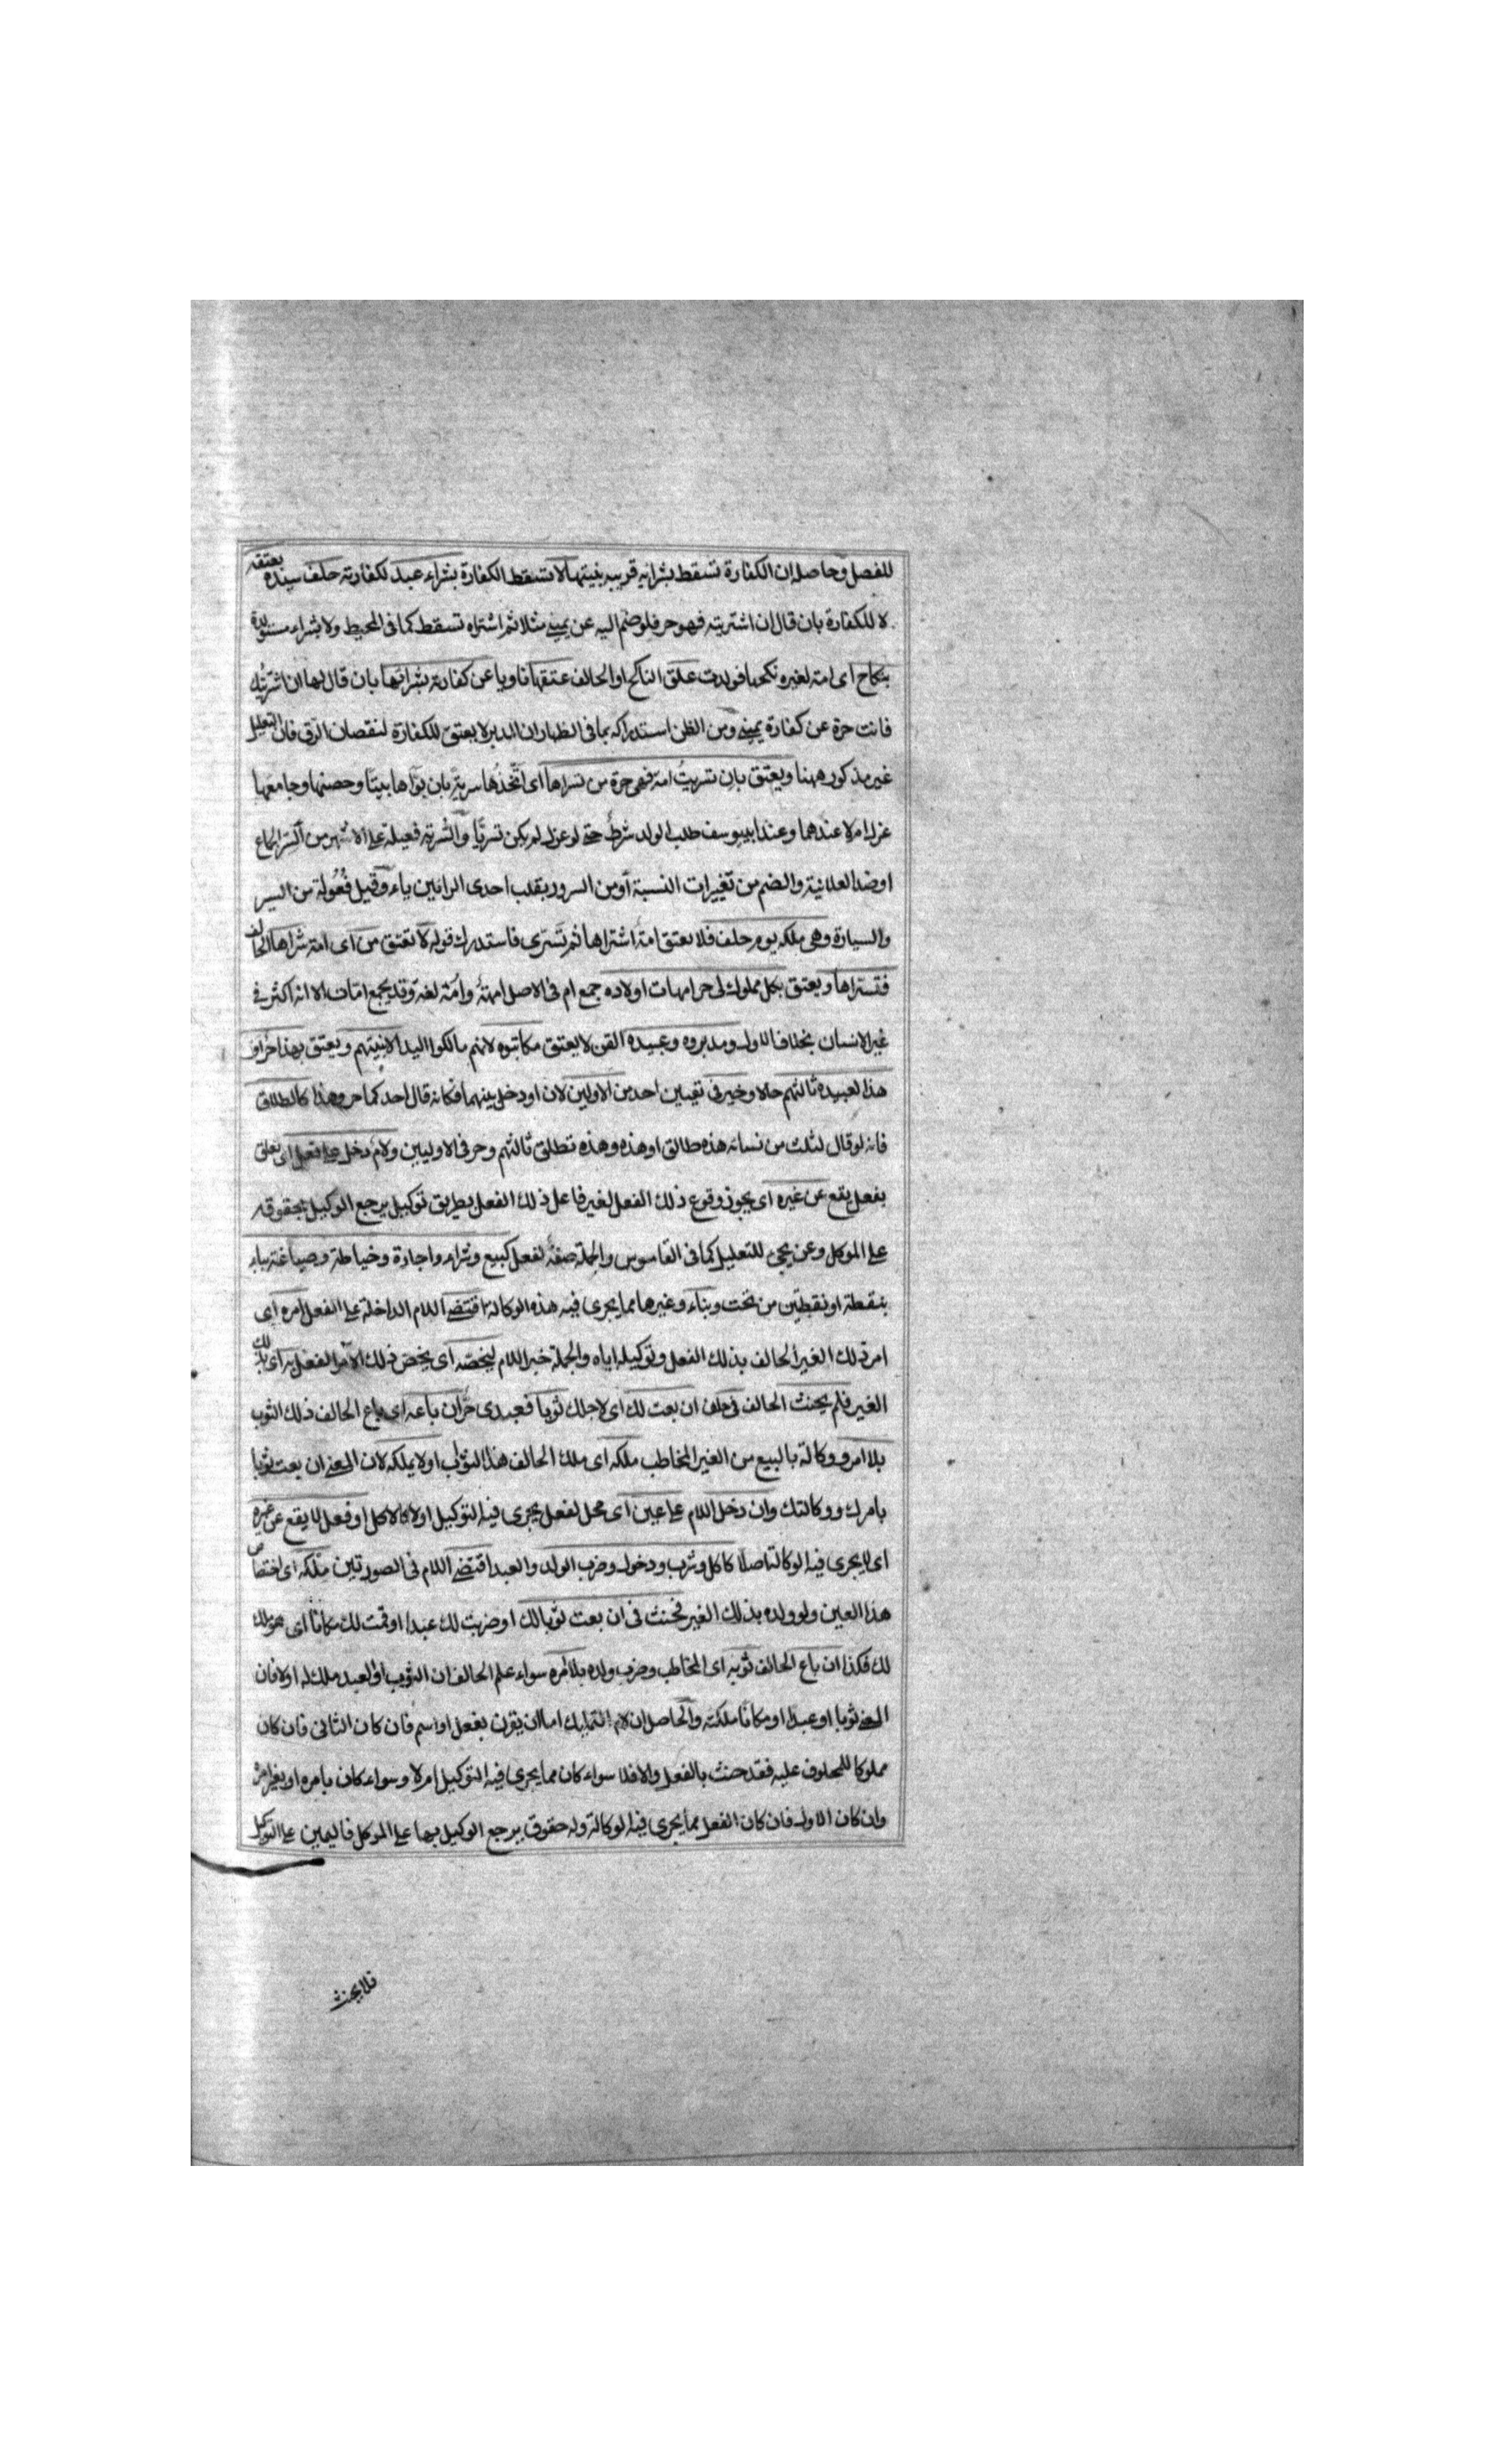 للفصل وحاصله ان الكفارة تسقط بشرائه قريبه بنيتها لا تسقط الكفارة بشراء عبد لكفارته حلف سيده بعتقه
لا للكفارة بان قال ان اشتريته فهو حر فلو ضم اليه عن يميني مثلا ثم اشتراه تسقط كما في المحيط ولا بشراء مستولدة
بنكاح اى امة لغيره نكحها فولدت علق الناكح او الحالف عتقها ناويا عن كفارته بشرائها بان قال لها ان اشتريتك
فانت حرة عن كفارة يميني ومن الظن استدراكه بما في الظهار ان المدبر لا يعتق للكفارة لنقصان الرق فان التعليل
غير مذكور ههنا ويعتق بان تسريت امة فهى حرة من تسراها اى اتخذها سرية بان بوأها بيتا وحصنها وجامعها
عزل ام لا عندهما وعند ابييوسف طلب الولد شرط حتى لو عزل لم يكن تسريا والسرية فعيلة على الاشهر من السر الجماع
او ضد العلانية والضم من تغييرات النسبة أو من السرور بقلب احدى الرائين ياء وقيل فعولة من السير
والسيارة وهى ملكه يوم حلف فلا يعتق امة اشتراها ثم تسرى فاستدرك قوله لا تعتق من اى امة شراها الحالف
فتسراها ويعتق بكل مملوك لى حر امهات اولاده جمع ام في الاصل امهة وامة لغة وقد يجمع امات الا انه اكثر في
غير الانسان بخلاف الاول ومدبروه وعبيده القن لا يعتق مكاتبوه لانهم مالكوا اليد الا بنيتهم ويعتق بهذا حر او
هذا لعبيده ثالثهم حالا وخير في تعيين احد من الاولين لان او دخل بينهما فكانه قال احدكما حر وهذا كالطلاق
فانه لو قال لثلث من نسائه هذه طالق او هذه وهذه تطلق ثالثهم وحر في الاوليين ولام دخل على فعل اى تعلق
بفعل يقع عن غيره اى يجوز وقوع ذلك الفعل لغير فاعل ذلك الفعل بطريق توكيل يرجع الوكيل بحقوقه
على الموكل وعن يجئ للتعليل كما في القاموس والجملة صفة لفعل كبيع وشراء واجارة وخياطة وصياغة بياء
بنقطة او نقطتين من تحت وبناء وغيرها مما يجرى فيه هذه الوكالة اقتضى اللام الداخلة على الفعل امره اى
امر ذلك الغير الحالف بذلك الفعل وتوكيله اياه والجملة خبر اللام ليخصه اى يخص ذلك الآمر الفعل به اى بذلك
الغير فلم يحنث الحالف في حلف ان بعت لك اى لاجلك ثوبا فعبدى حر ان باعه اى باع الحالف ذلك الثوب
بلا امر ووكالة بالبيع من الغير المخاطب ملكه اى ملك الحالف هذا الثوب او لا يملكه لان المعنى ان بعت ثوبا
بامرك ووكالتك وان دخل اللام على عين اى محل لفعل يجرى فيه التوكيل اولا كالاكل او فعل لا يقع عن غيره
اى لا يجرى فيه الوكالة اصلا كاكل وشرب ودخول وضرب الولد والعبد اقتضى اللام في الصورتين ملكه اى اختصاص
هذا العين ولو ولده بذلك الغير فحنث في ان بعت ثوبا لك او ضربت لك عبدا او قمت لك مكانا اى مملوك
لك فكذا ان باع الحالف ثوبه اى المخاطب وضرب ولده بلا امره سواء علم الحالف ان الثوب او العبد ملك له اولا فان
المعنى ثوبا او عبدا او مكانا ملكته والحاصل ان لام التمليك اما ان يقرن بفعل او اسم فان كان الثانى فان كان
مملوكا للمحلوف عليه فقد حنث بالفعل والا فلا سواء كان مما يجرى فيه التوكيل ام لا وسواء كان بامره او بغير امره
وان كان الاول فان كان الفعل مما يجرى فيه الوكالة وله حقوق يرجع الوكيل بها على الموكل فاليمين على التوكيل
فلا يحنث